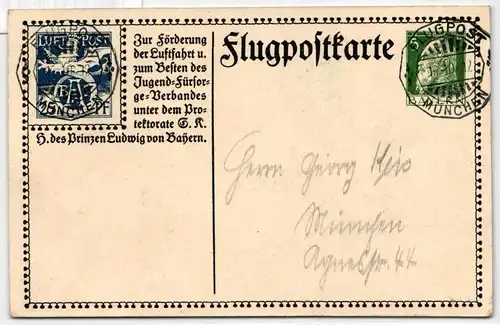 LUFT-POST
FLUGPOST
MÜNCHEN
Zur Förderung
der Luftfahrt u.
zum Besten des
Jugend-Fürsor-
ge-Verbandes
unter dem Pro-
tektorate S. K.
H. des Prinzen Ludwig von Bayern.
Flugpostkarte
5
FLUGPOST
MÜNCHEN
Herrn Georg
München
Agnesstr. 44